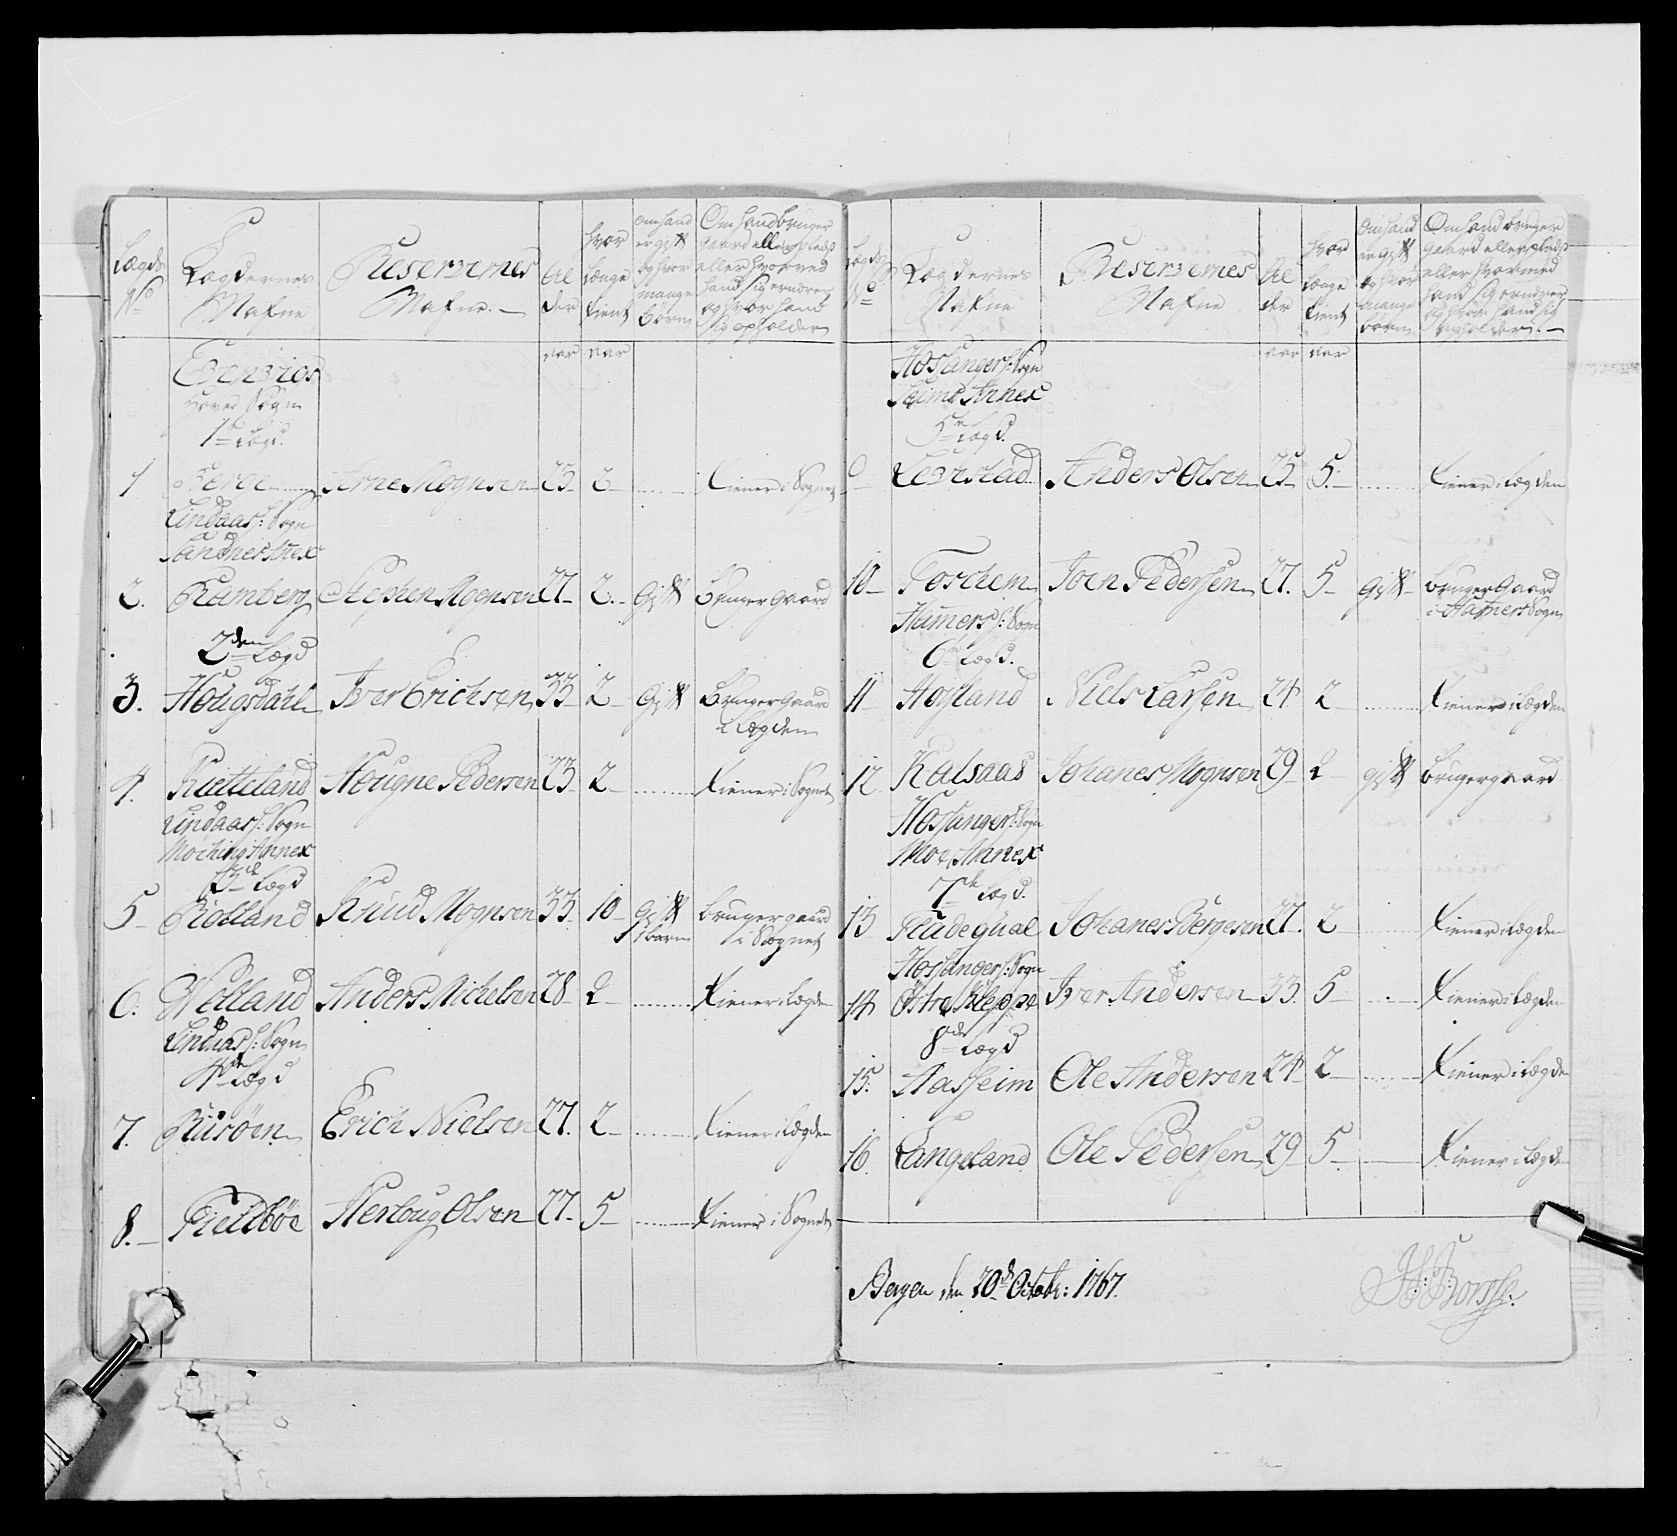 Lægds No
Lægdernes Nafne
Reservernes Nafne.
Alder
hvor længe tient
Om hand er gift og hvor mange børn
Om hand bruger gaard eller plads eller hvorved hand sig ernærer og hvor hand sig opholder
aar aar
Evenvigs
Hoved Sogn
1te Lægd.
1 Berge Arne Mognsen 23 2 Tiener i Sognet
Lindaas Sogn
Sandnes Anex
2. Ramberg Stephen Mognsen 27 2 Gift Bruger gaard
2den Lægd
3. Hougsdahl Iver Erichsen 33 2 Gift Bruger Gaard
i Lægden
4. Kietteland Hougne Pedersen 23 2 Tiener i Sognet
Lindaas Sogn
Moching Annex
3de Lægd
5 Biolland Knud Mognsen 33 10 Gift Bruger gaard
1 barn i Sognet
6. Welland Anders Michelsen 28 2 Tiener i Lægden
Lindaas Sogn
4de Lægd
7. Risöen Erich Nielsen 27. 2 Tiener i Lægden
8. Fieldböe Herloug Olsen 27 5 Tiener i Sognet
Lægds No
Lægdernes Nafne
Reservernes Nafne
Alder
hvor længe tient
Om hand er gift og hvor mange børn
Om hand bruger gaard eller plads eller hvormed hand sig ernærer og hvor hand sig opholder.
aar aar
Hosanger Sogn
Seims Annex
5te Lægd.
9 Leirstad Anders Olsen 25 5 Tiener i Lægden
10 Foschem Joen Pedersen 27. 5 gift bruger Gaard
i Hamers Sogn
Hamers Sogn
6te Lægd.
11 Hopland Niels Larsen 24 2 Tiener i Lægden
12 Kalsaas Johanes Mognsen 29 2 gift bruger gaard
Hosanger Sogn
Moe Annex
7de Lægd.
13 Fladequal Johanes Börgesen 27. 2 Tiener i Lægden
Hosanger Sogn
14 Östre Kleppe Iver Andersen 33. 5 Tiener i Lægden
8de Lægd
15. Aasheim Ole Andersen 24 2 Tiener i Lægden
16. Langeland Ole Pedersen 29 5 Tiener i Lægden
Bergen den 20de Octobr: 1767.